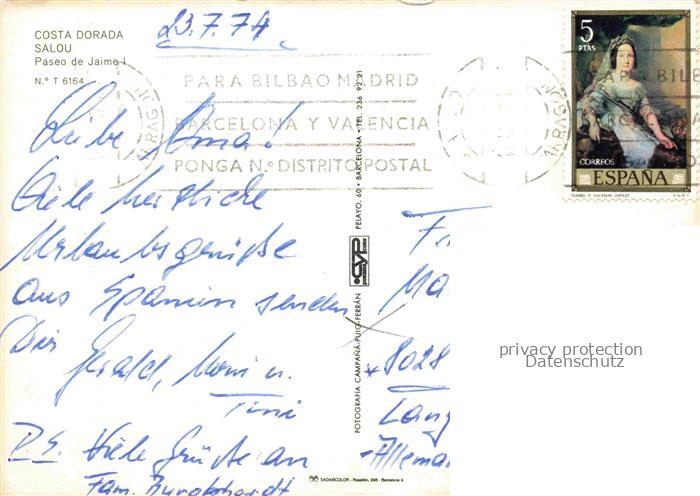 COSTA DORADA
SALOU
Paseo de Jaime I
N.º T 6164
23.7.74
PARA BILBAO MADRID
BARCELONA Y VALENCIA
PONGA N.º DISTRITO POSTAL
5
PTAS
CORREOS
ESPAÑA
ISABEL II VICENTE LOPEZ
F.N.M.T.
Liebe Oma!
Viele herzliche
Urlaubsgrüße
aus Spanien senden
Dir Gerald, Moni u.
Tini
P.S. Viele Grüße an
Fam. Burghhardt
PELAYO, 60 • BARCELONA • TEL. 236 92 21
CYP
FOTOGRAFIA CAMPAÑÁ-PUIG FERRÁN
F
Ma
8028
Lang
-Allema
SADAGCOLOR - Rosellón, 298 - Barcelona
privacy protection
Datenschutz